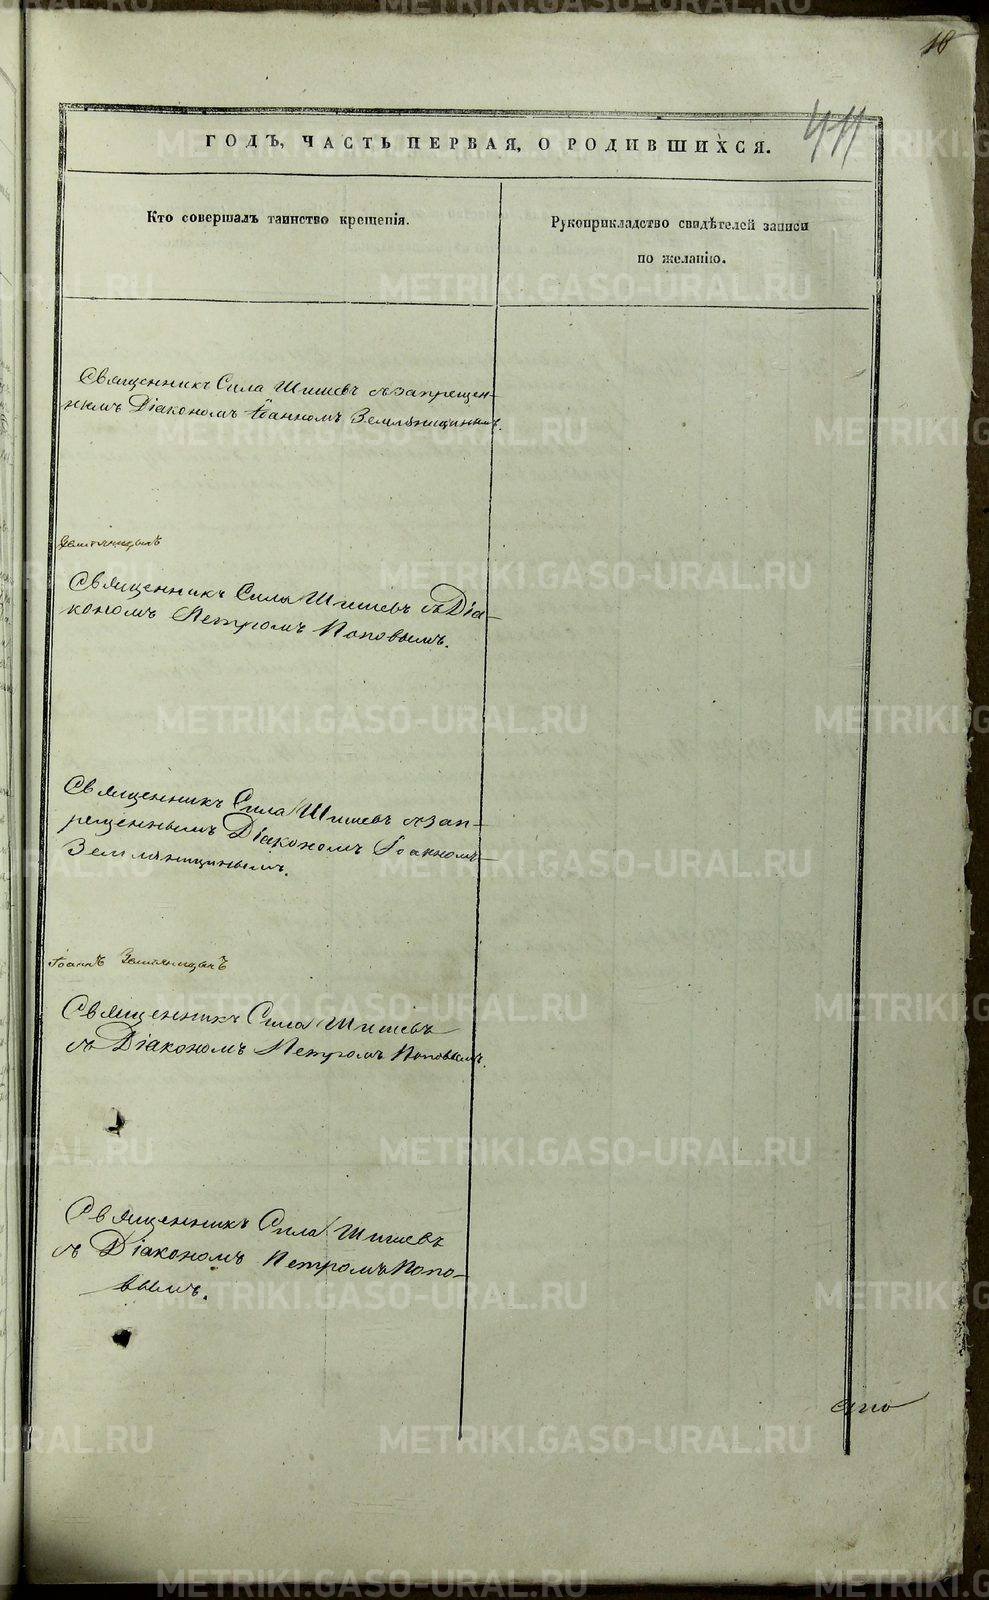 18
411
ГОДЪ, ЧАСТЬ ПЕРВАЯ, О РОДИВШИХСЯ.
Кто совершалъ таинство крещенія.
Рукоприкладство свидѣтелей записи
по желанію.
Священникъ Сила Шишевъ съ запрещен-
нымъ Діакономъ Іоанномъ Земляницинымъ.
Земляницынъ
Священникъ Сила Шишевъ съ Діа-
кономъ Петромъ Поповымъ.
Священникъ Сила Шишевъ съ зап-
рещеннымъ Діакономъ Іоанномъ
Земляницинымъ.
Іоаннъ Земляницынъ
Священникъ Сила Шишевъ
съ Діакономъ Петромъ Поповымъ.
Священникъ Сила Шишевъ
съ Діакономъ Петромъ Попо-
вымъ.
METRIKI.GASO-URAL.RU